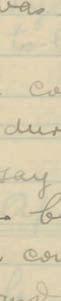 was
co
dur
say
b
cou